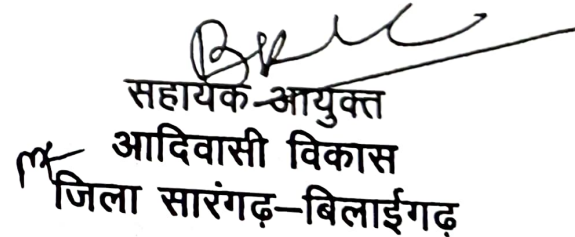 सहायक आयुक्त
आदिवासी विकास
जिला सारंगढ़–बिलाईगढ़